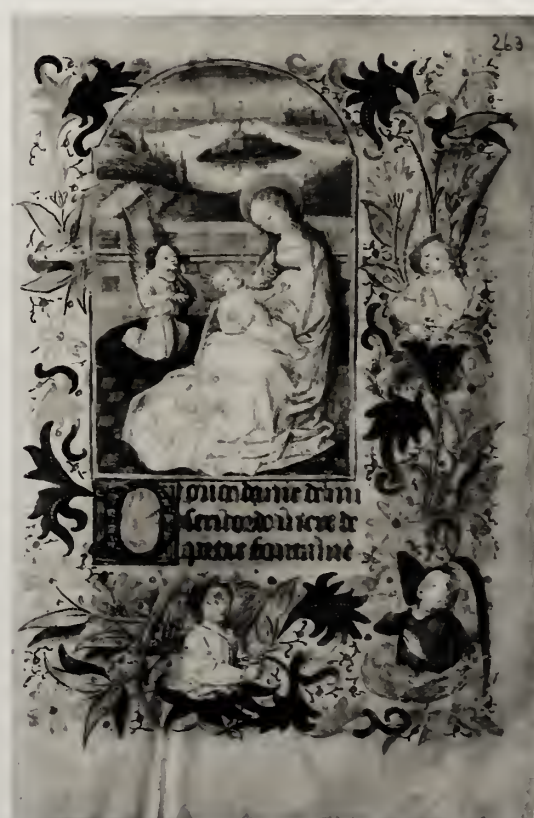 263
Doulce dame de mi
sericorde mere de
pitie fontaine